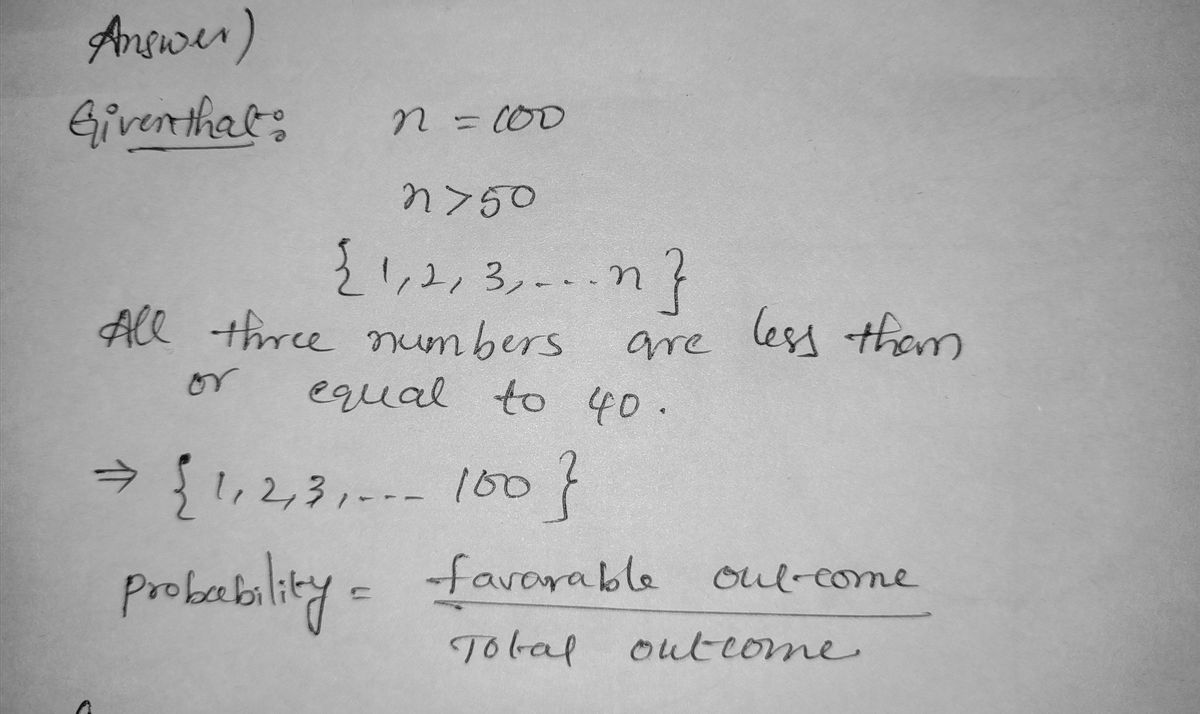 Answer)
Given that: n = 100
n > 50
{ 1, 2, 3, ---. n }
All three numbers are less than
or equal to 40.
⇒ { 1, 2, 3, --- 100 }
probability = favarable out-come
Total outcome